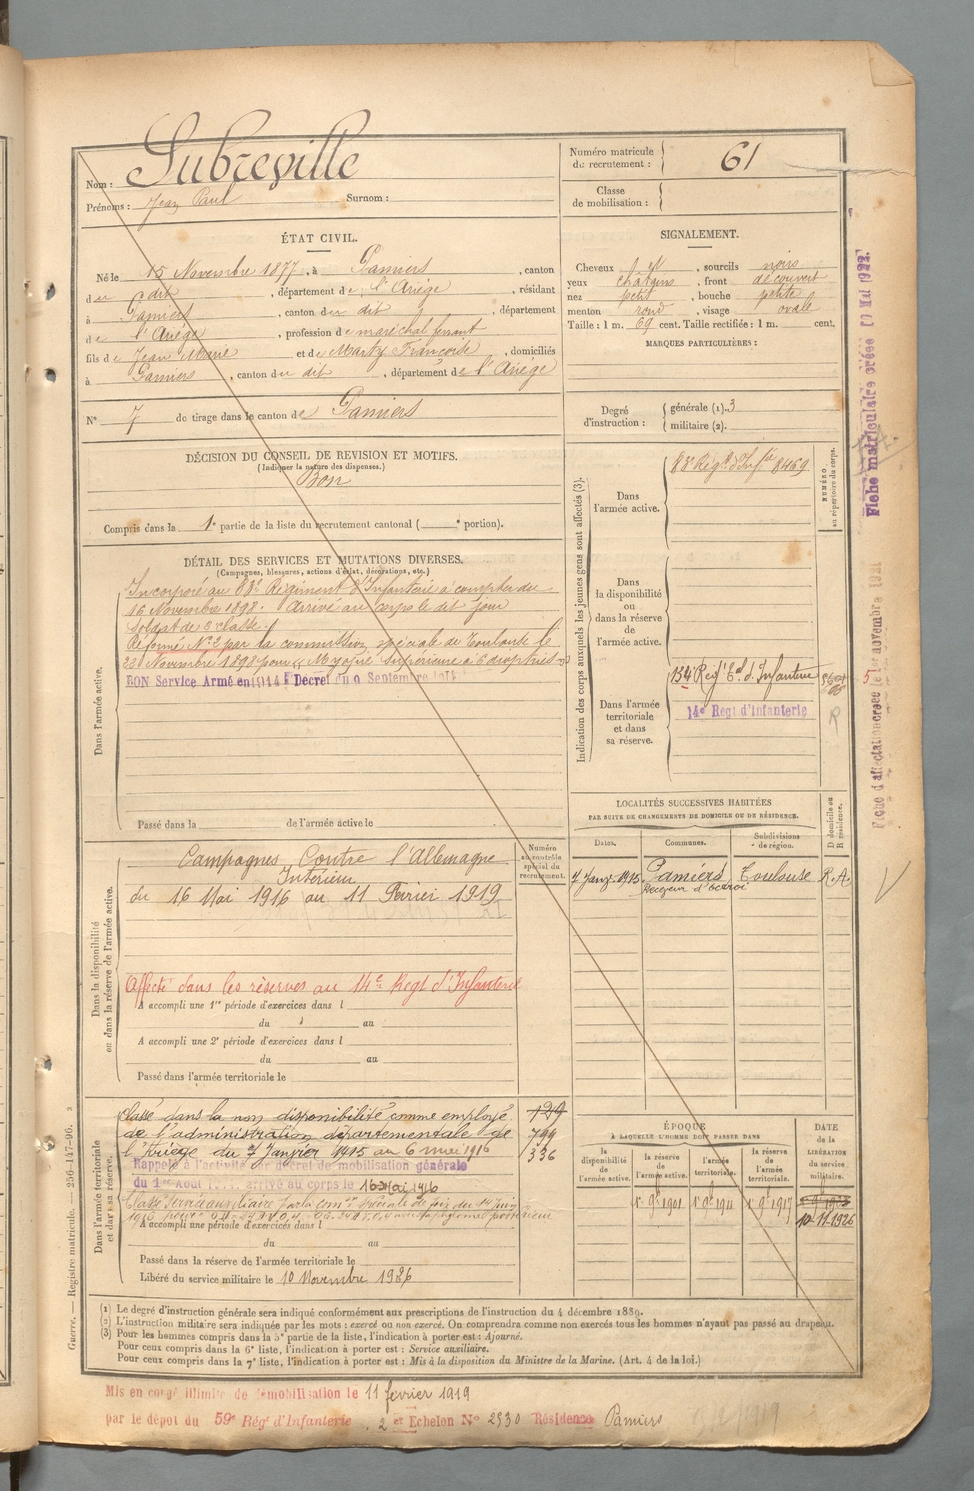 Nom : Subreville
Prénoms : Jean Paul Surnom :
Numéro matricule du recrutement : 61
Classe de mobilisation :
ÉTAT CIVIL.
Né le 15 Novembre 1877, à Pamiers, canton
du dit, département de l'Ariège, résidant
à Pamiers, canton du dit, département
de l'Ariège, profession de maréchal ferrant
fils de Jean Marie et de Marty Françoise, domiciliés
à Pamiers, canton du dit, département de l'Ariège
N° 7 de tirage dans le canton de Pamiers
SIGNALEMENT.
Cheveux, sourcils noirs
yeux châtains, front découvert
nez petit, bouche petite
menton rond, visage ovale
Taille : 1 m. 69 cent. Taille rectifiée : 1 m. cent.
MARQUES PARTICULIÈRES :
Degré d'instruction : générale (1). 3
militaire (2).
DÉCISION DU CONSEIL DE REVISION ET MOTIFS.
(Indiquer la nature des dispenses.)
Bon
Compris dans la 1e partie de la liste du recrutement cantonal ( e portion).
DÉTAIL DES SERVICES ET MUTATIONS DIVERSES.
(Campagnes, blessures, actions d'éclat, décorations, etc.)
Dans l'armée active.
Incorporé au 83e Régiment d'Infanterie à compter du
16 Novembre 1898. Arrivé au corps le dit jour
Soldat de 2e classe
Réformé N°2 par la commission spéciale de Toulouse le
Novembre 1898 pour Myopie supérieure à 6 dioptries
BON Service Armé en 1914 Décret du 9 Septembre 1914
Passé dans la de l'armée active le
Indication des corps auxquels les jeunes gens sont affectés (3).
NUMÉRO au répertoire du corps.
Dans l'armée active.
83e Régt d'Infie 8469
Dans la disponibilité ou dans la réserve de l'armée active.
Dans l'armée territoriale et dans sa réserve.
134 Régt Eal d'Infanterie
14e Regt d'Infanterie
R
LOCALITÉS SUCCESSIVES HABITÉES
PAR SUITE DE CHANGEMENTS DE DOMICILE OU DE RÉSIDENCE.
Dates. Communes. Subdivisions de région. D domicile ou R résidence.
7 Janv. 1915 Pamiers Toulouse R.A
Receveur d'octroi
Dans la disponibilité ou dans la réserve de l'armée active.
Numéro au contrôle spécial du recrutement.
Campagnes Contre l'Allemagne
Intérieur
du 16 Mai 1916 au 11 Février 1919
Affecté dans les réserves au 14e Regt d'Infanterie
A accompli une 1re période d'exercices dans l
du au
A accompli une 2e période d'exercices dans l
du au
Passé dans l'armée territoriale le
Dans l'armée territoriale et dans sa réserve.
Classé dans la non disponibilité comme employé 129
de l'administration départementale de 799
l'Ariège du 7 Janvier 1915 au 6 mai 1916 336
Rappelé à l'activité décret de mobilisation générale
du 1er Aout arrivé au corps le 16 Mai 1916
Classé Service auxiliaire par la comon spéciale de Foix du 14 Juin
1916 pour
A accompli une période d'exercices dans l
du au
Passé dans la réserve de l'armée territoriale le
Libéré du service militaire le 10 Novembre 1926
ÉPOQUE
À LAQUELLE L'HOMME DOIT PASSER DANS
la disponibilité de l'armée active. la réserve de l'armée active. l'armée territoriale. la réserve de l'armée territoriale.
DATE de la LIBÉRATION du service militaire.
1er 9bre 1901 1er 9bre 1911 1er 9bre 1917
10-11-1926
(1) Le degré d'instruction générale sera indiqué conformément aux prescriptions de l'instruction du 4 décembre 1889.
(2) L'instruction militaire sera indiquée par les mots : exercé ou non exercé. On comprendra comme non exercés tous les hommes n'ayant pas passé au drapeau.
(3) Pour les hommes compris dans la 5e partie de la liste, l'indication à porter est : Ajourné.
Pour ceux compris dans la 6e liste, l'indication à porter est : Service auxiliaire.
Pour ceux compris dans la 7e liste, l'indication à porter est : Mis à la disposition du Ministre de la Marine. (Art. 4 de la loi.)
Mis en congé illimité de démobilisation le 11 février 1919
par le dépot du 59e Régt d'Infanterie, 2 er Echelon N° 2930 Résidence Pamiers
Guerre. — Registre matricule. — 256-147-96.
Fiche matriculaire créée Mai 1922.
Fiche d'affectation créée le 1er novembre 1921